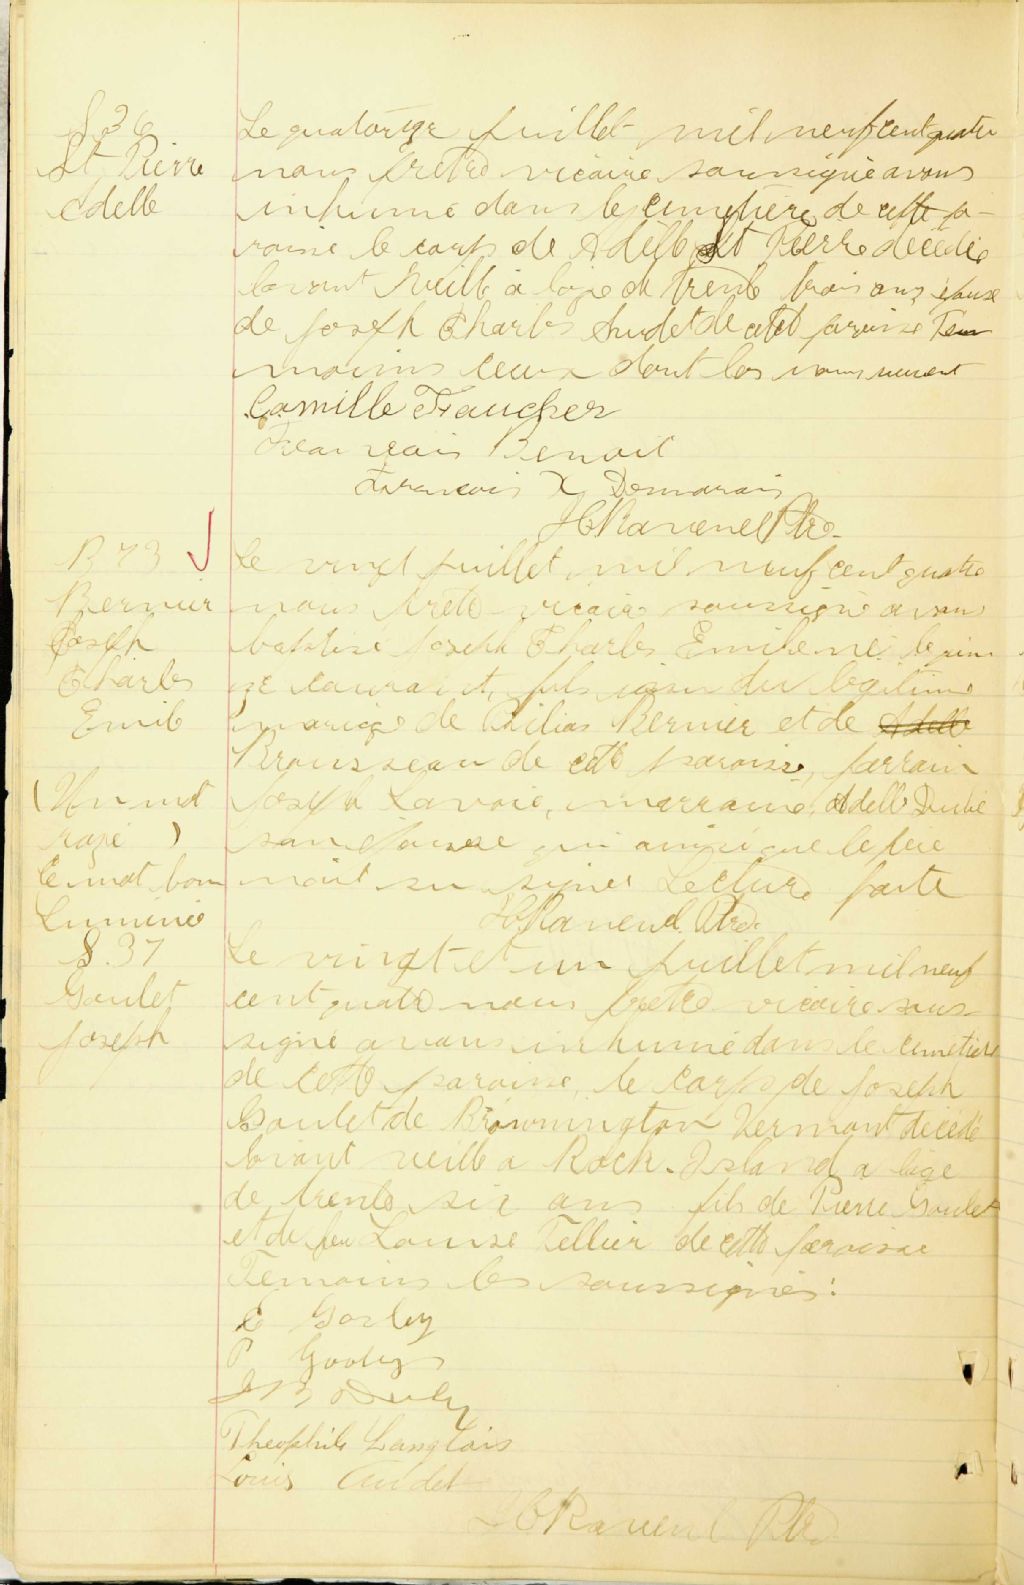 S 36
St Pierre
Adelle
Le quatorze juillet mil neuf cent quatre
nous prêtre vicaire soussigné avons
inhumé dans le cimetière de cette pa-
roisse le corps de Adelle St Pierre décédée
l'avant veille à l'age de trente trois ans épouse
de Joseph Charles Audet de cette paroisse Tem
moins ceux dont les noms suivent
Camille Faucher
Francois Benoit
Francois X Demarais
Ravenel Ptre
B 73
Bernier
Joseph
Charles
Emile
Le vingt juillet mil neuf cent quatre
nous prêtre vicaire soussigné avons
baptisé Joseph Charles Emile né le quin
ze courant, fils issu du légitime
mariage de Bernier et de Adelle
Brousseau de cette paroisse, parrain
Joseph Lavoie, marraine, Adelle Dubé
son épouse qui ainsi que le père
n'ont su signer Lecture faite
Ravenel Ptre
(Un mot
rayé )
le mot
S. 37
Goulet
Joseph
Le vingt et un juillet mil neuf
cent quatre nous prêtre vicaire sous-
signé avons inhumé dans le cimetière
de cette paroisse, le corps de Joseph
Goulet de Brownington Vermont décédé
l'avant veille a Rock-Island a l'age
de trente six ans fils de Pierre Goulet
et de feu Louise Tellier de cette paroisse
Temoins les soussignés:
P
Theophile Langlois
Louis Audet
Ravenel Ptre